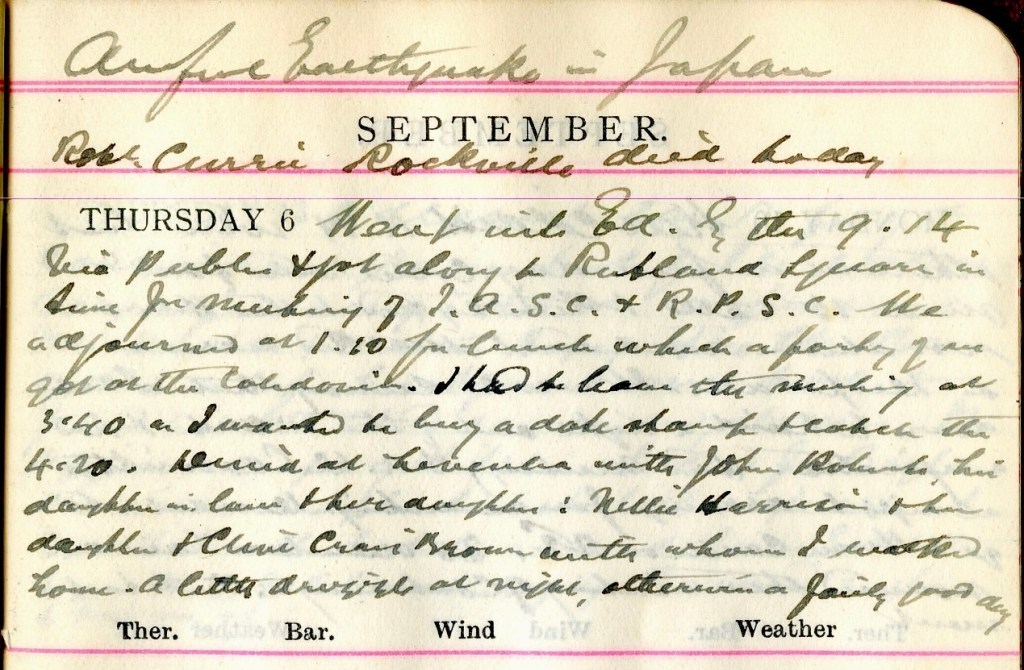 Awful Earthquake in Japan
SEPTEMBER.
Robt. Currie Rockville died today
THURSDAY 6 Went with Ed. by the 9.14
via Peebles & got along to Rutland Square in
time for meeting of I.A.S.C. & R.P.S.C. We
adjourned at 1.10 for lunch which a party of us
got at the Caledonian. I had to leave the meeting at
3.40 as I wanted to buy a date stamp & catch the
4.20. Arrived at with John Roberts, his
daughter in law & her daughter: Nellie Harrison & her
daughter & Clive Craig Brown with whom I walked
home. A little drizzle at night, otherwise a fairly good day
Ther. Bar. Wind Weather